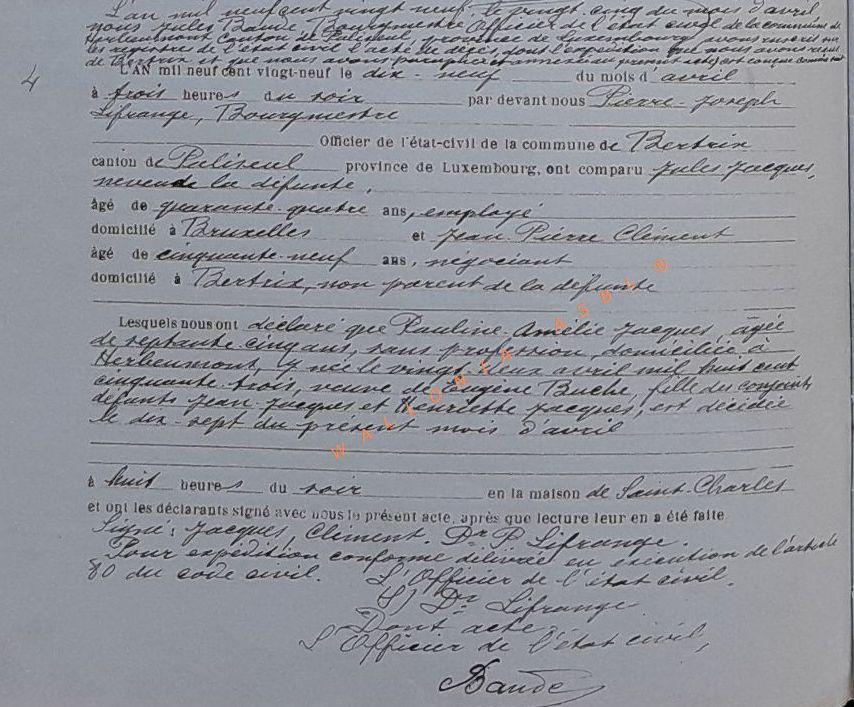 L'an mil neuf cent vingt neuf, le vingt cinq du mois d'avril
nous Jules Baude, Bourgmestre, Officier de l'état civil de la commune de
Herbeumont, canton de Paliseul, province de Luxembourg, avons inscrit sur
les registres de l'état civil l'acte de décès, dont l'expédition que nous avons reçue
de Bertrix et que nous avons paraphée et annexée au présent acte, est conçue comme suit
4
L'AN mil neuf cent vingt-neuf le dix-neuf du mois d'avril
à trois heures du soir par devant nous Pierre-Joseph
Lifrange, Bourgmestre
Officier de l'état-civil de la commune de Bertrix
canton de Paliseul province de Luxembourg, ont comparu Jules Jacques,
neveu de la défunte,
âgé de quarante-quatre ans, employé
domicilié à Bruxelles et Jean-Pierre Clément
âgé de cinquante-neuf ans, négociant
domicilié à Bertrix, non parent de la défunte
Lesquels nous ont déclaré que Pauline-Amélie Jacques, âgée
de septante cinq ans, sans profession, domiciliée à
Herbeumont, y née le vingt deux avril mil huit cent
cinquante-trois, veuve de Eugène Buche, fille des conjoints
défunts Jean Jacques et Henriette Jacques, est décédée
le dix-sept du présent mois d'avril
à huit heures du soir en la maison de Saint-Charles
et ont les déclarants signé avec nous le présent acte, après que lecture leur en a été faite
Signé: Jacques, Clément. Dr P. Lifrange.
Pour expédition conforme délivrée en exécution de l'article
80 du code civil. L'Officier de l'état civil.
S) Dr Lifrange
Dont acte.
L'Officier de l'état civil,
Baude
WALLONIA ASBL ®